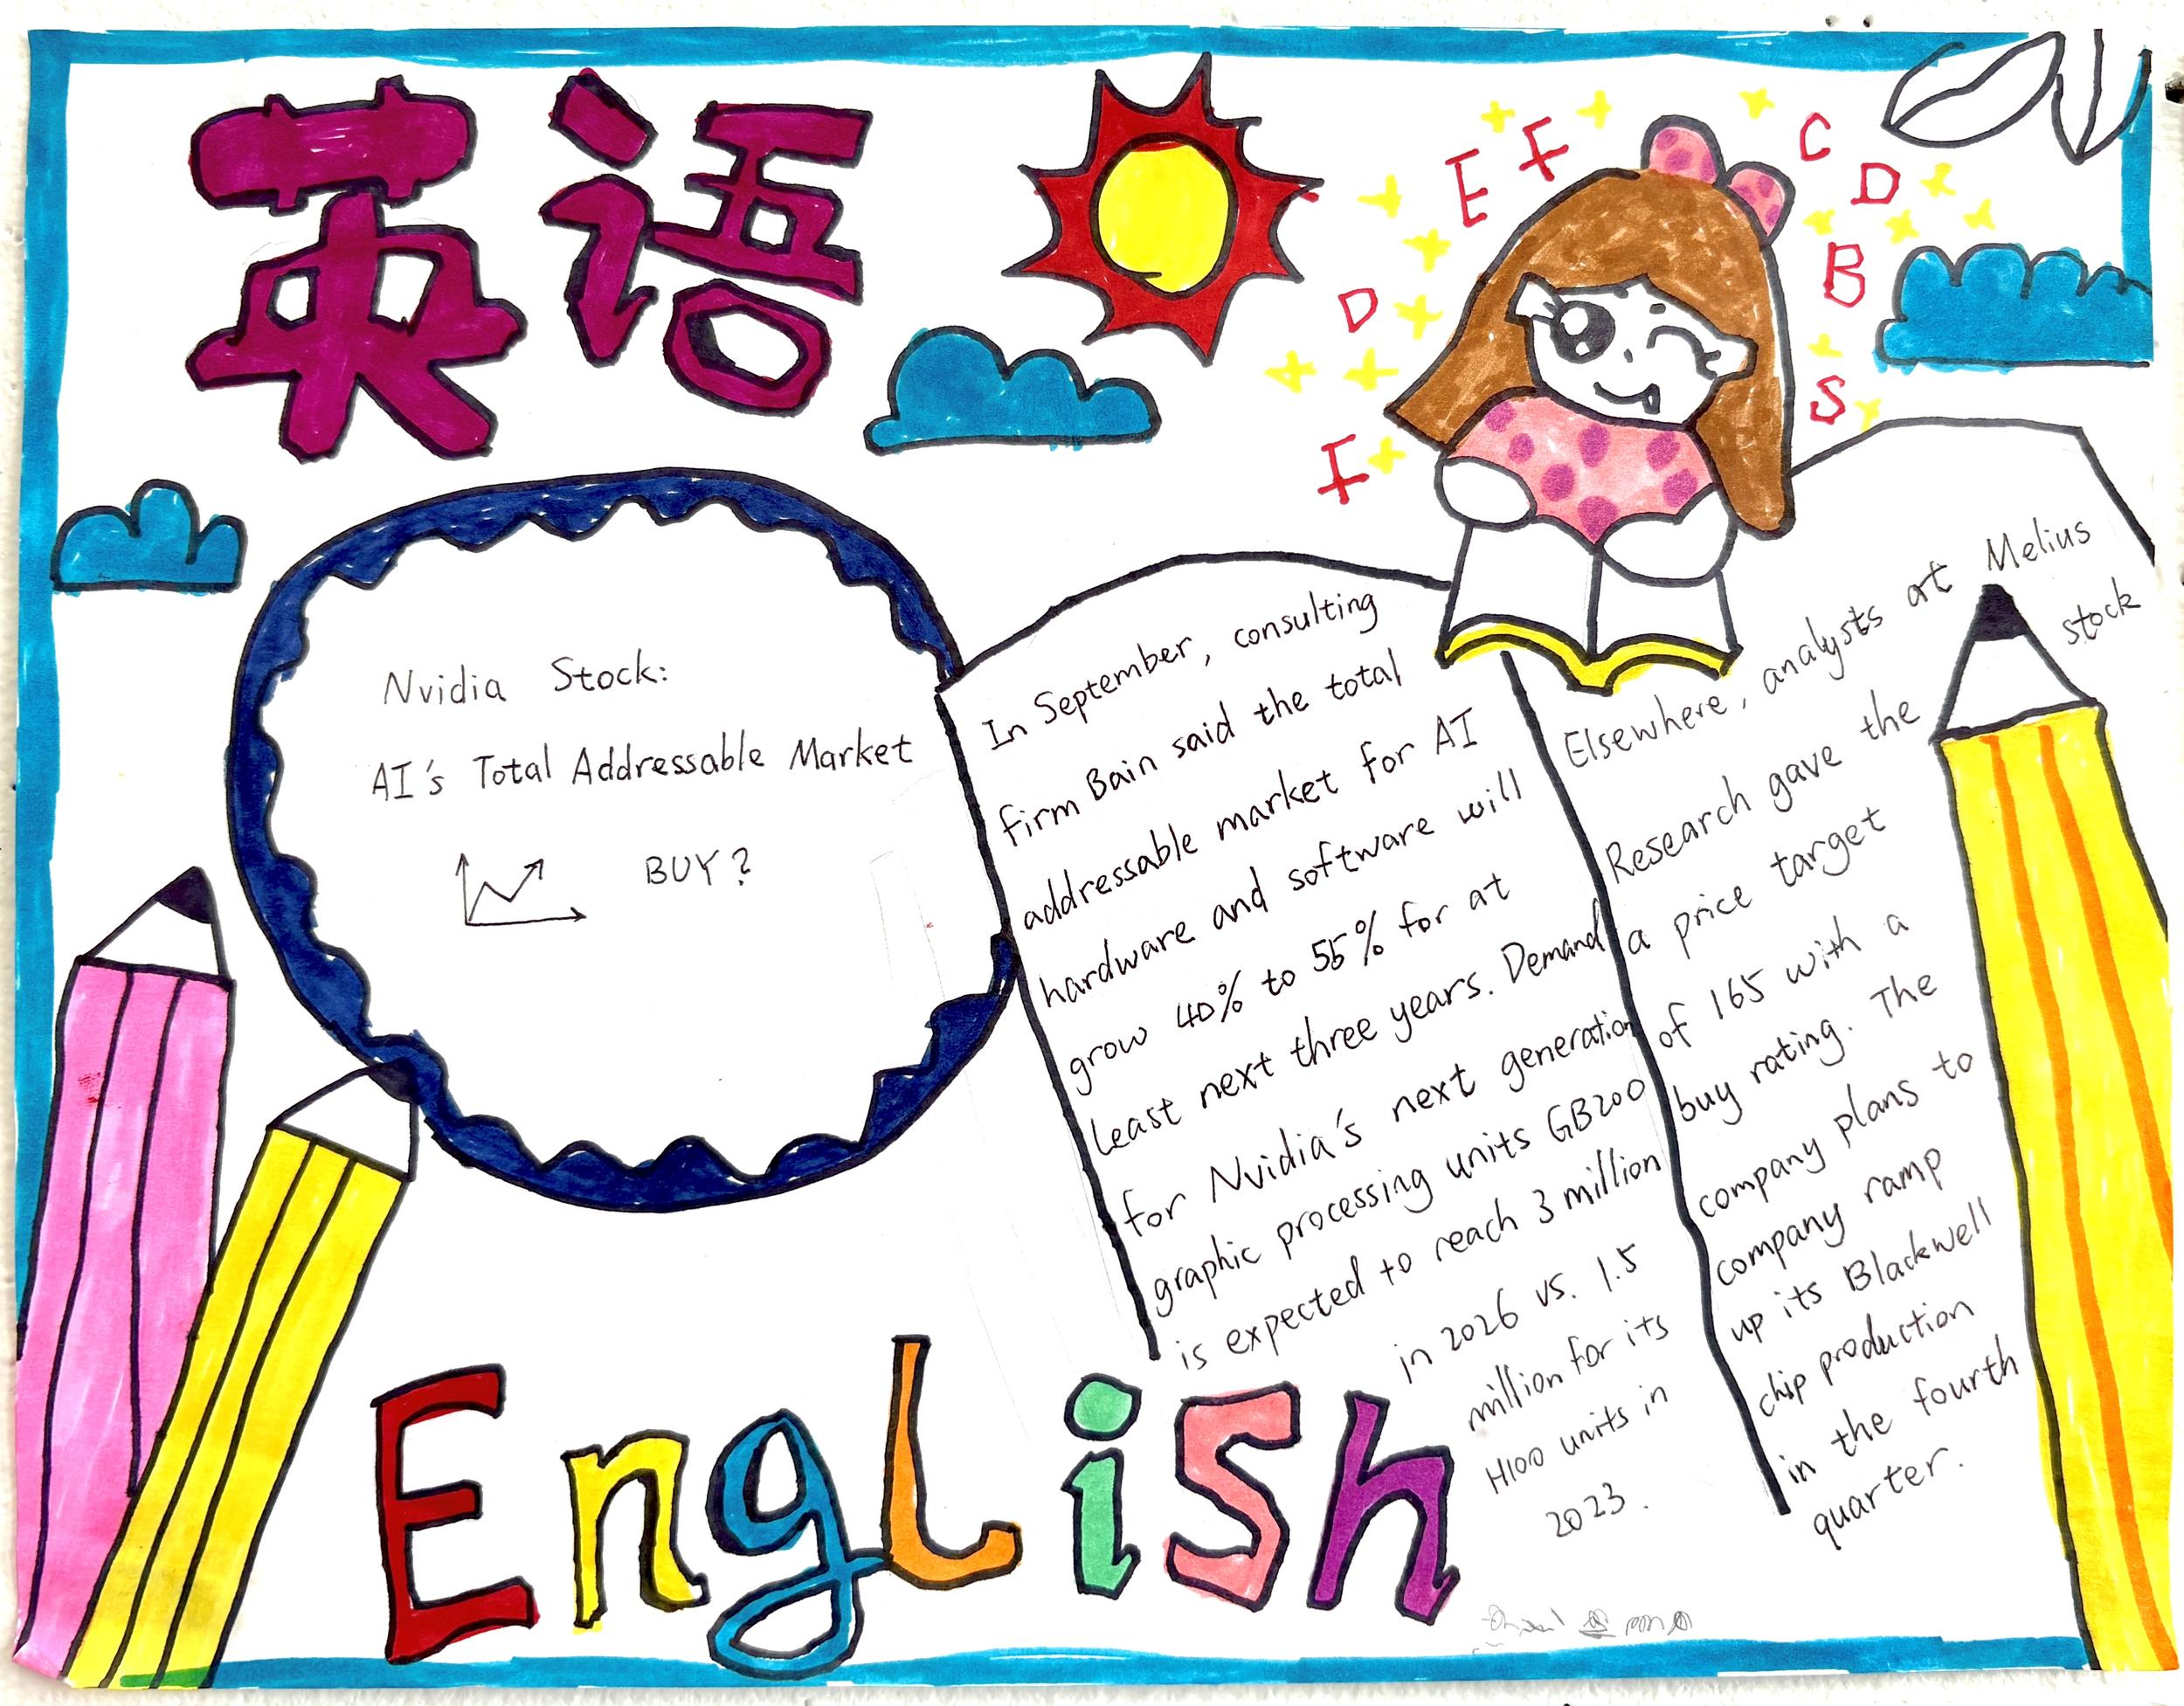 英语
E F
C
D
B
D
S
F
Nvidia Stock:
AI's Total Addressable Market
BUY?
In September, consulting
firm Bain said the total
addressable market for AI
hardware and software will
grow 40% to 55% for at
Least next three years. Demand
for Nvidia's next generation
graphic processing units GB200
is expected to reach 3 million
in 2026 vs. 1.5
million for its
H100 units in
2023.
Elsewhere, analysts at Melius
Research gave the stock
a price target
of 165 with a
buy rating. The
company plans to
company ramp
up its Blackwell
chip production
in the fourth
quarter.
EngLish